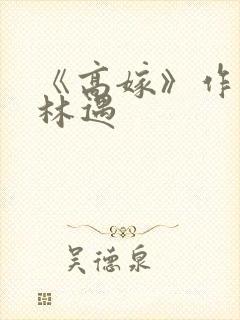 《高嫁》作
林遇
吴德泉